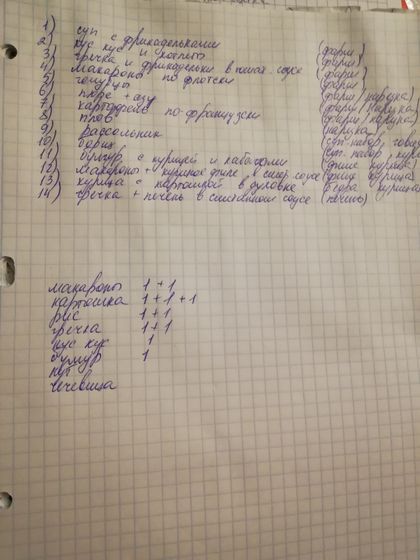 1) суп с фрикадельками (фарш)
2) кус кус и котлеты (фарш)
3) гречка и фрикадельки в томат. соусе (фарш)
4) макароны по флотски (фарш)
5) чепурцы (фарш/нарезка)
6) пюре + азу (фарш/нарезка)
7) картофель по-французски (фарш/нарезка)
8) плов (нарезка)
9) рассольник (суп. набор, говяд
10) борщ (суп. набор, кури
11) булгур с курицей и кабачками (филе курица
12) макароны + куриное филе в смет. соусе (филе курица
13) курица с картошкой в духовке (бедра курица
14) гречка + печень в сметанном соусе (печень)
макароны 1 + 1
картошка 1 + 1 + 1
рис 1 + 1
гречка 1 + 1
кус кус 1
булгур 1
нут
чечевица